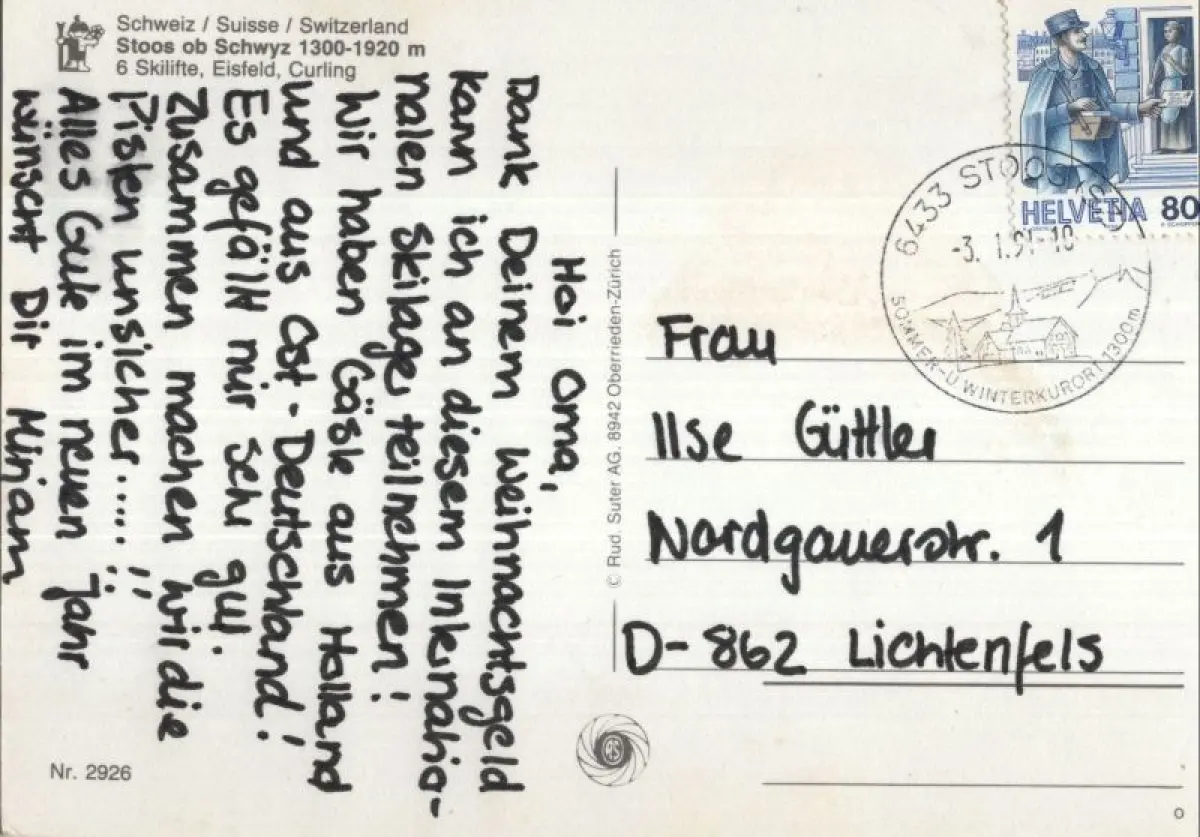 Schweiz / Suisse / Switzerland
Stoos ob Schwyz 1300-1920 m
6 Skilifte, Eisfeld, Curling
Hoi Oma,
Dank Deinem Weihnachtsgeld
kann ich an diesem Internatio-
nalen Skilager teilnehmen!
Wir haben Gäste aus Holland
und aus Ost-Deutschland!
Es gefällt mir sehr gut.
Zusammen machen wir die
Pisten unsicher.....!!
Alles Gute im neuen Jahr
wünscht Dir Mirjam
Nr. 2926
© Rud. Suter AG. 8942 Oberrieden-Zürich
RS
HELVETIA 80
6433 STOOS
-3. 1.91-10
SOMMER-U WINTERKURORT 1300m
Frau
Ilse Güttler
Nordgauerstr. 1
D-862 Lichtenfels